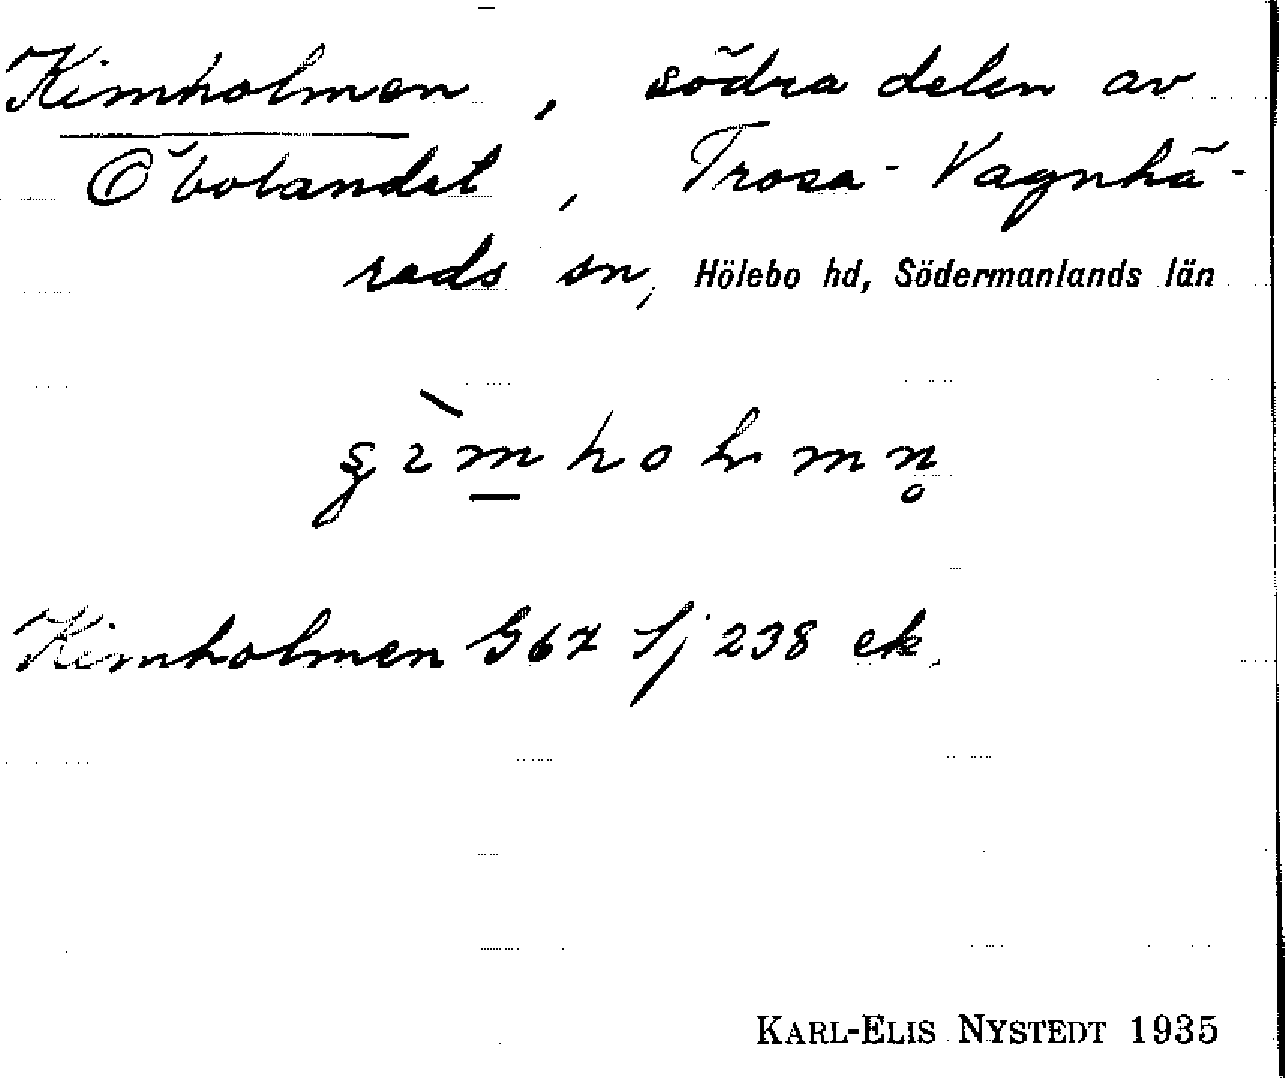 Kimholmen, södra delen av
Öbolandet, Trosa-Vagnhä-
rads sn, Hölebo hd, Södermanlands län
Kimholmen G67 1/j 238 ek.
KARL-ELIS NYSTEDT 1935